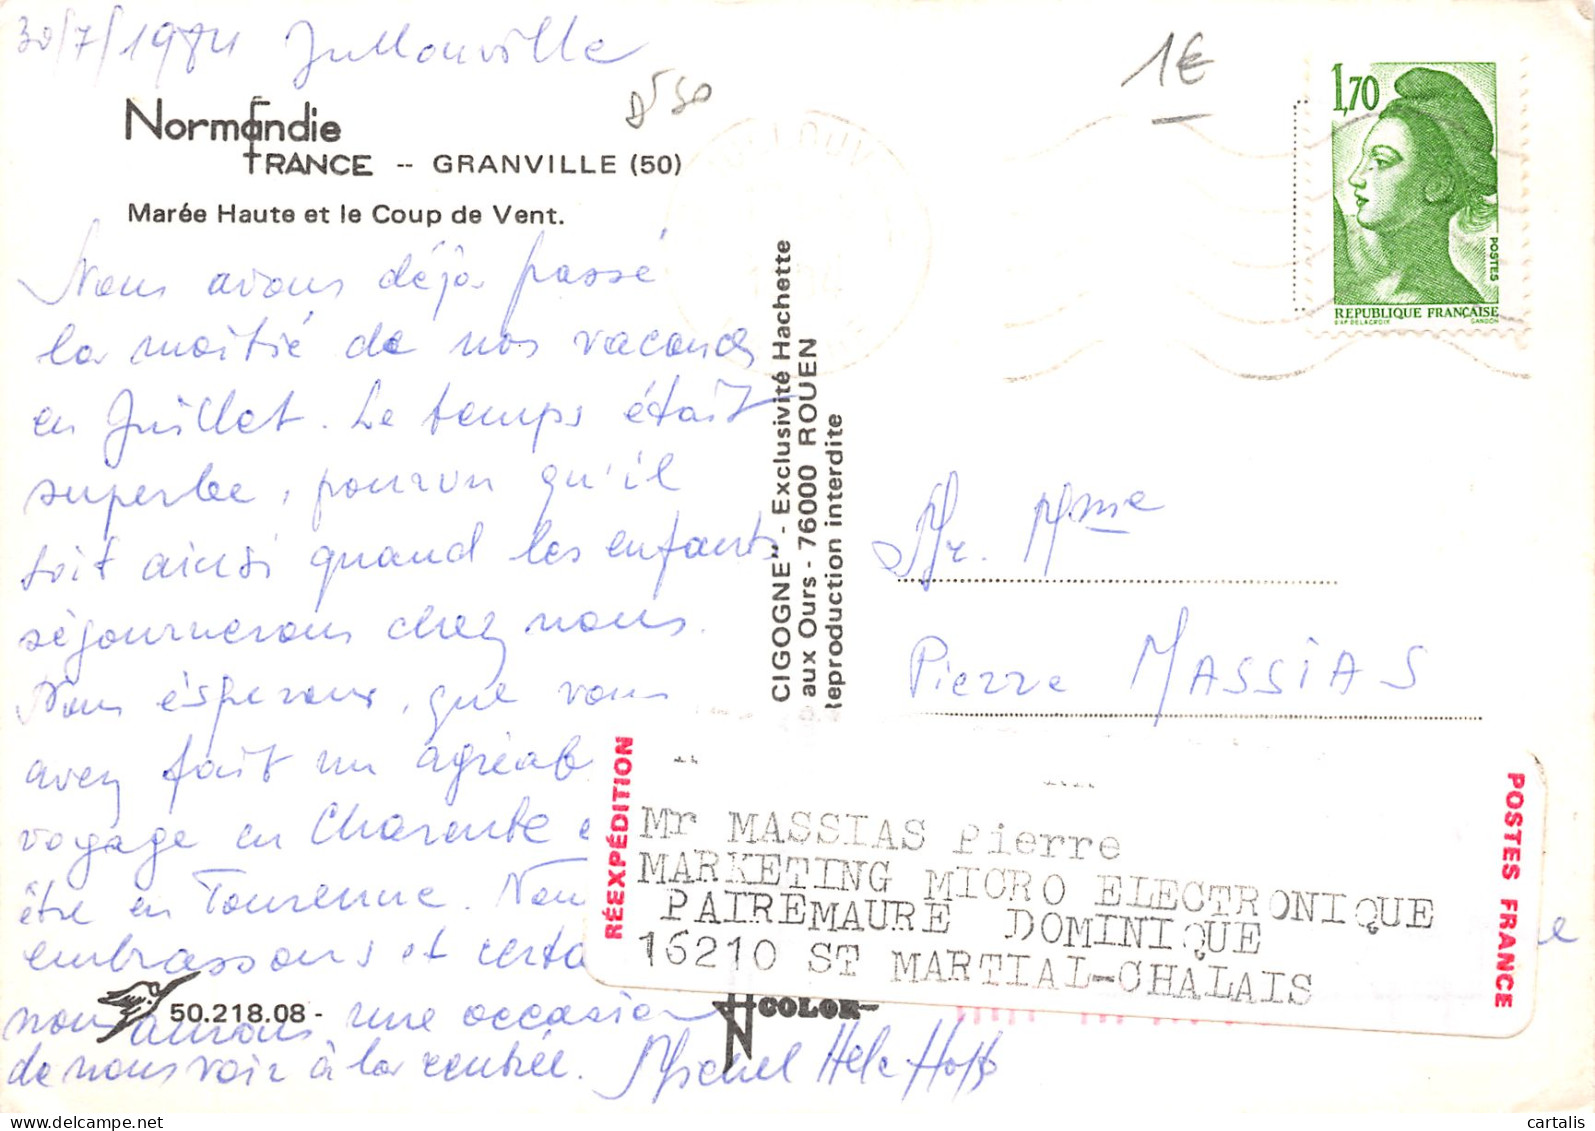 30/7/1984 Jullouville
1€
Normandie
FRANCE -- GRANVILLE (50)
Marée Haute et le Coup de Vent.
1,70
POSTES
REPUBLIQUE FRANÇAISE
Nous avons déjà passé
la moitié de nos vacances
en Juillet. Le temps était
superbe, pourvu qu'il
soit ainsi quand les enfants
séjournerons chez nous.
Nous éspérons, que vous
avez fait un agréab
voyage en Charente e
être en Tourenne. Nou
embrassons et certa
nous aurons une occasion
de nous voir à la rentrée. Michel Hele Hoff
50.218.08 -
CIGOGNE" - Exclusivité Hachette
aux Ours - 76000 ROUEN
Reproduction interdite
COLOR
Mr. Mme
Pierre MASSIAS
RÉEXPÉDITION
Mr MASSIAS Pierre
MARKETING MICRO ELECTRONIQUE
PAIREMAURE DOMINIQUE
16210 ST MARTIAL-CHALAIS
POSTES FRANCE
https://www.delcampe.net
cartalis